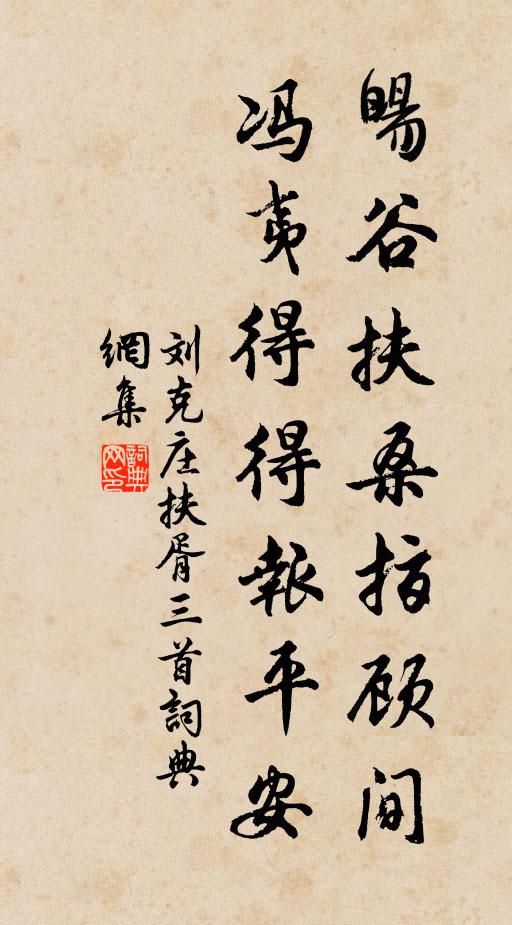 暘谷扶桑指顾间
冯夷得得报平安
刘克庄扶胥三首詞典
網集
詞典网印